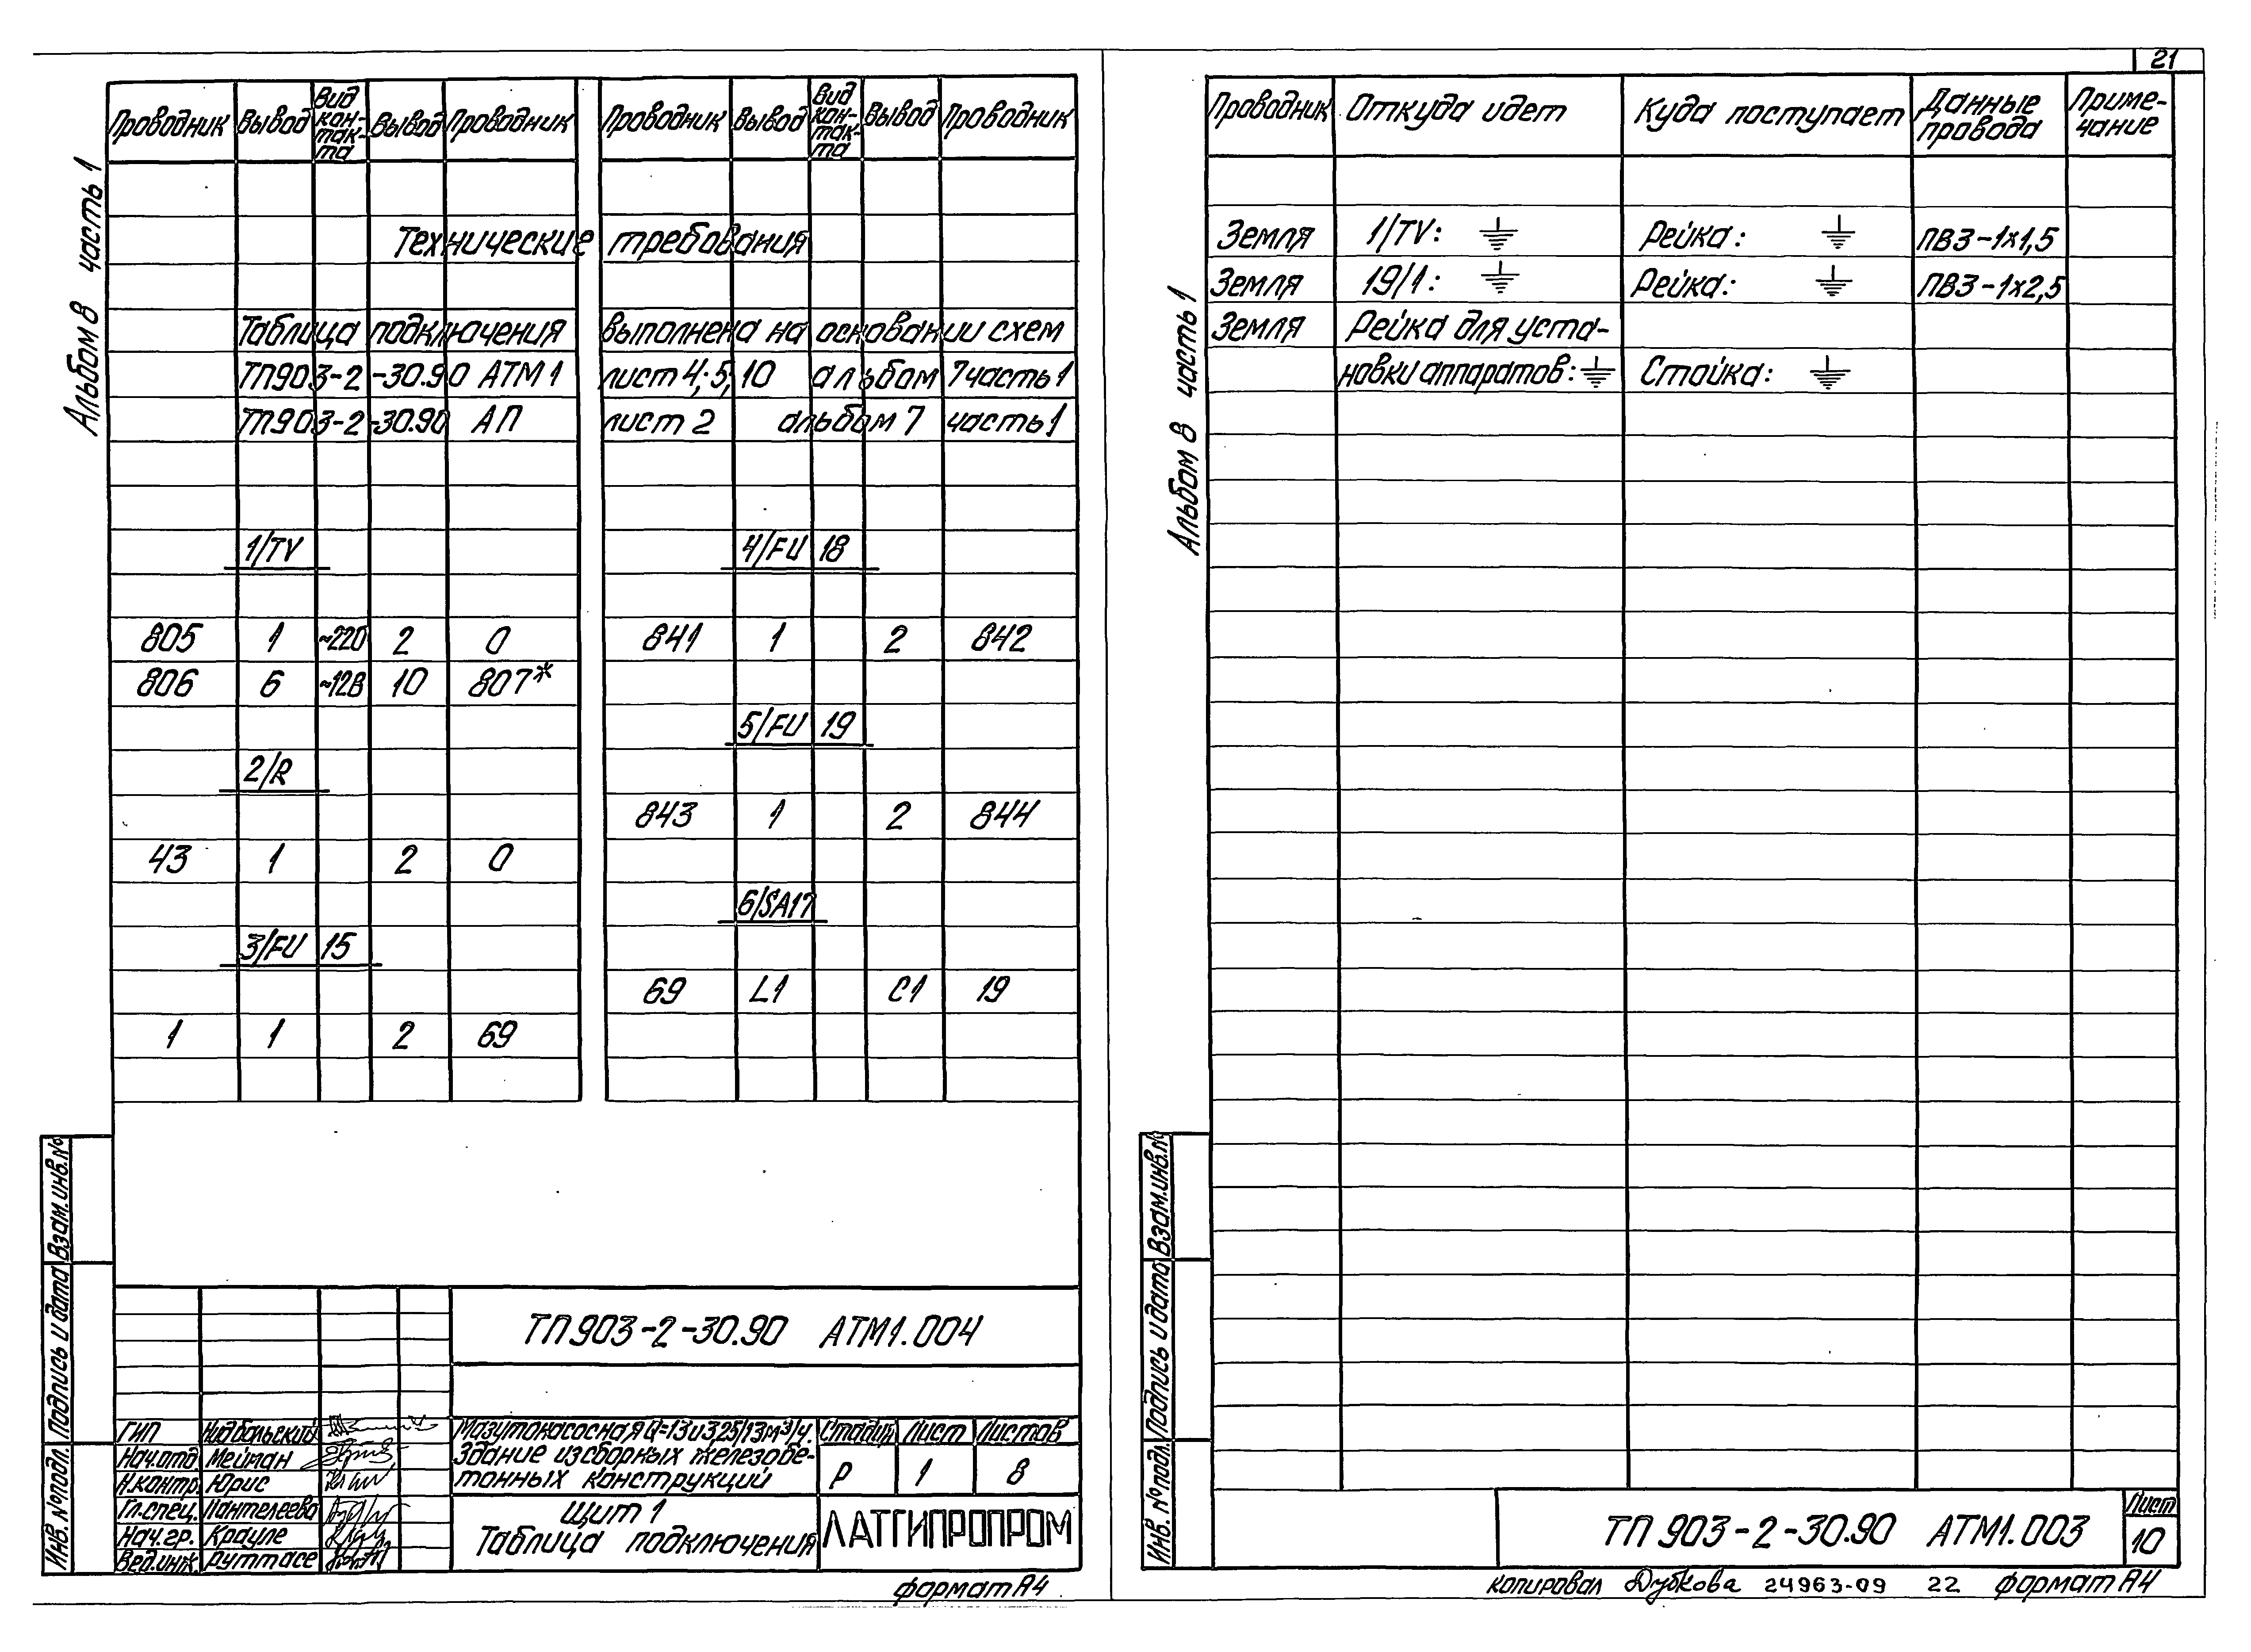 Альбом 8 часть 1
Проводник Вывод Вид кон-так-та Вывод Проводник Проводник Вывод Вид кон-так-та Вывод Проводник
Технические требования
Таблица подключения выполнена на основании схем
ТП903-2-30.90 АТМ1 лист 4; 5; 10 альбом 7 часть 1
ТП903-2-30.90 АП лист 2 альбом 7 часть 1
1/TV 4/FU 18
805 1 ~220 2 0 841 1 2 842
806 6 ~12В 10 807*
5/FU 19
2/R
843 1 2 844
43 1 2 0
6/SA17
3/FU 15
69 L1 C1 19
1 1 2 69
Взам.инв.№
Подпись и дата
Инв.№подл.
ТП 903-2-30.90 АТМ1.004
ГИП
Нач.отд. Мейман
Н.контр. Юрис
Гл.спец. Пантелеева
Нач.гр. Крауле
Вед.инж. Руттасе
Мазутонасосная Q=13и3,25/13м³/ч.
Здание из сборных железобе-
тонных конструкций
Стадия Лист Листов
Р 1 8
Щит 1
Таблица подключения
ЛАТГИПРОПРОМ
формат А4
21
Альбом 8 часть 1
Проводник Откуда идет Куда поступает Данные провода Приме-чание
Земля 1/TV: Рейка: ПВ3-1х1,5
Земля 19/1: Рейка: ПВ3-1х2,5
Земля Рейка для уста-
новки аппаратов: Стойка:
Взам.инв.№
Подпись и дата
Инв.№подл.
ТП 903-2-30.90 АТМ1.003
Лист
10
копировал Дубкова 24963-09 22 формат А4